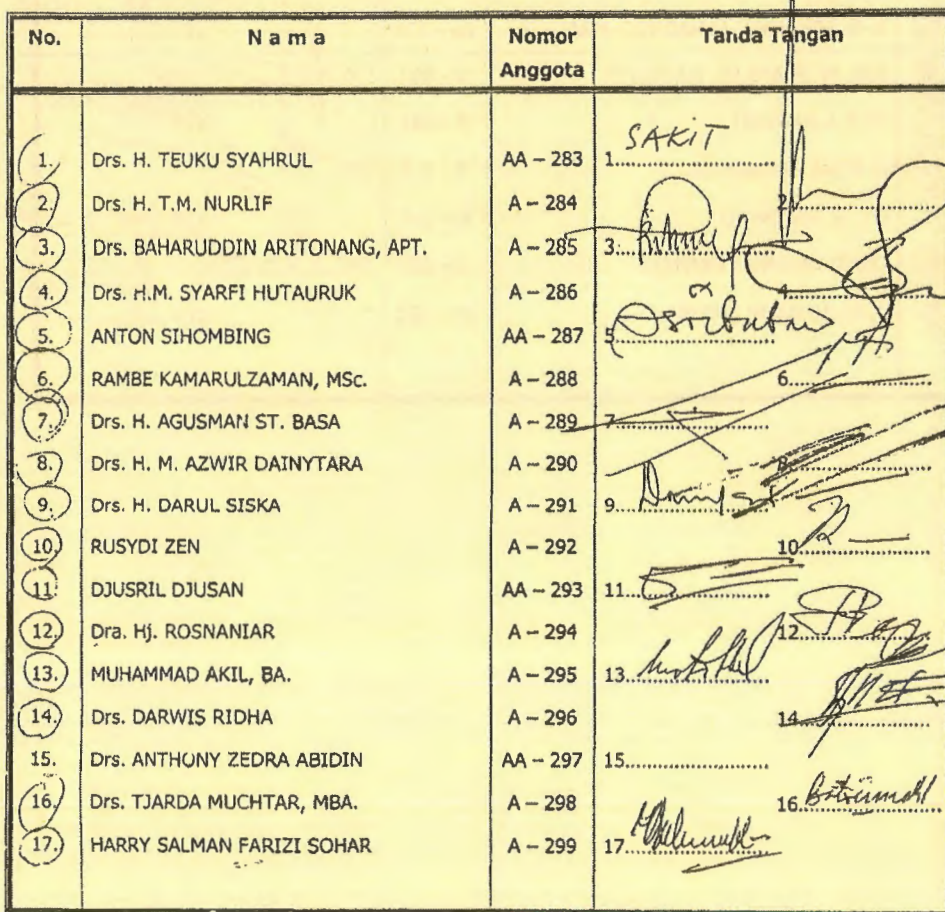 No. N a m a Nomor Anggota Tanda Tangan
1. Drs. H. TEUKU SYAHRUL AA – 283 1. SAKIT
2. Drs. H. T.M. NURLIF A – 284 2.
3. Drs. BAHARUDDIN ARITONANG, APT. A – 285 3.
4. Drs. H.M. SYARFI HUTAURUK A – 286 4
5. ANTON SIHOMBING AA – 287 5
6. RAMBE KAMARULZAMAN, MSc. A – 288 6.
7. Drs. H. AGUSMAN ST. BASA A – 289 7
8. Drs. H. M. AZWIR DAINYTARA A – 290 8.
9. Drs. H. DARUL SISKA A – 291 9.
10. RUSYDI ZEN A – 292 10.
11. DJUSRIL DJUSAN AA – 293 11.
12. Dra. Hj. ROSNANIAR A – 294 12.
13. MUHAMMAD AKIL, BA. A – 295 13.
14. Drs. DARWIS RIDHA A – 296 14.
15. Drs. ANTHONY ZEDRA ABIDIN AA – 297 15.
16. Drs. TJARDA MUCHTAR, MBA. A – 298 16.
17. HARRY SALMAN FARIZI SOHAR A – 299 17.